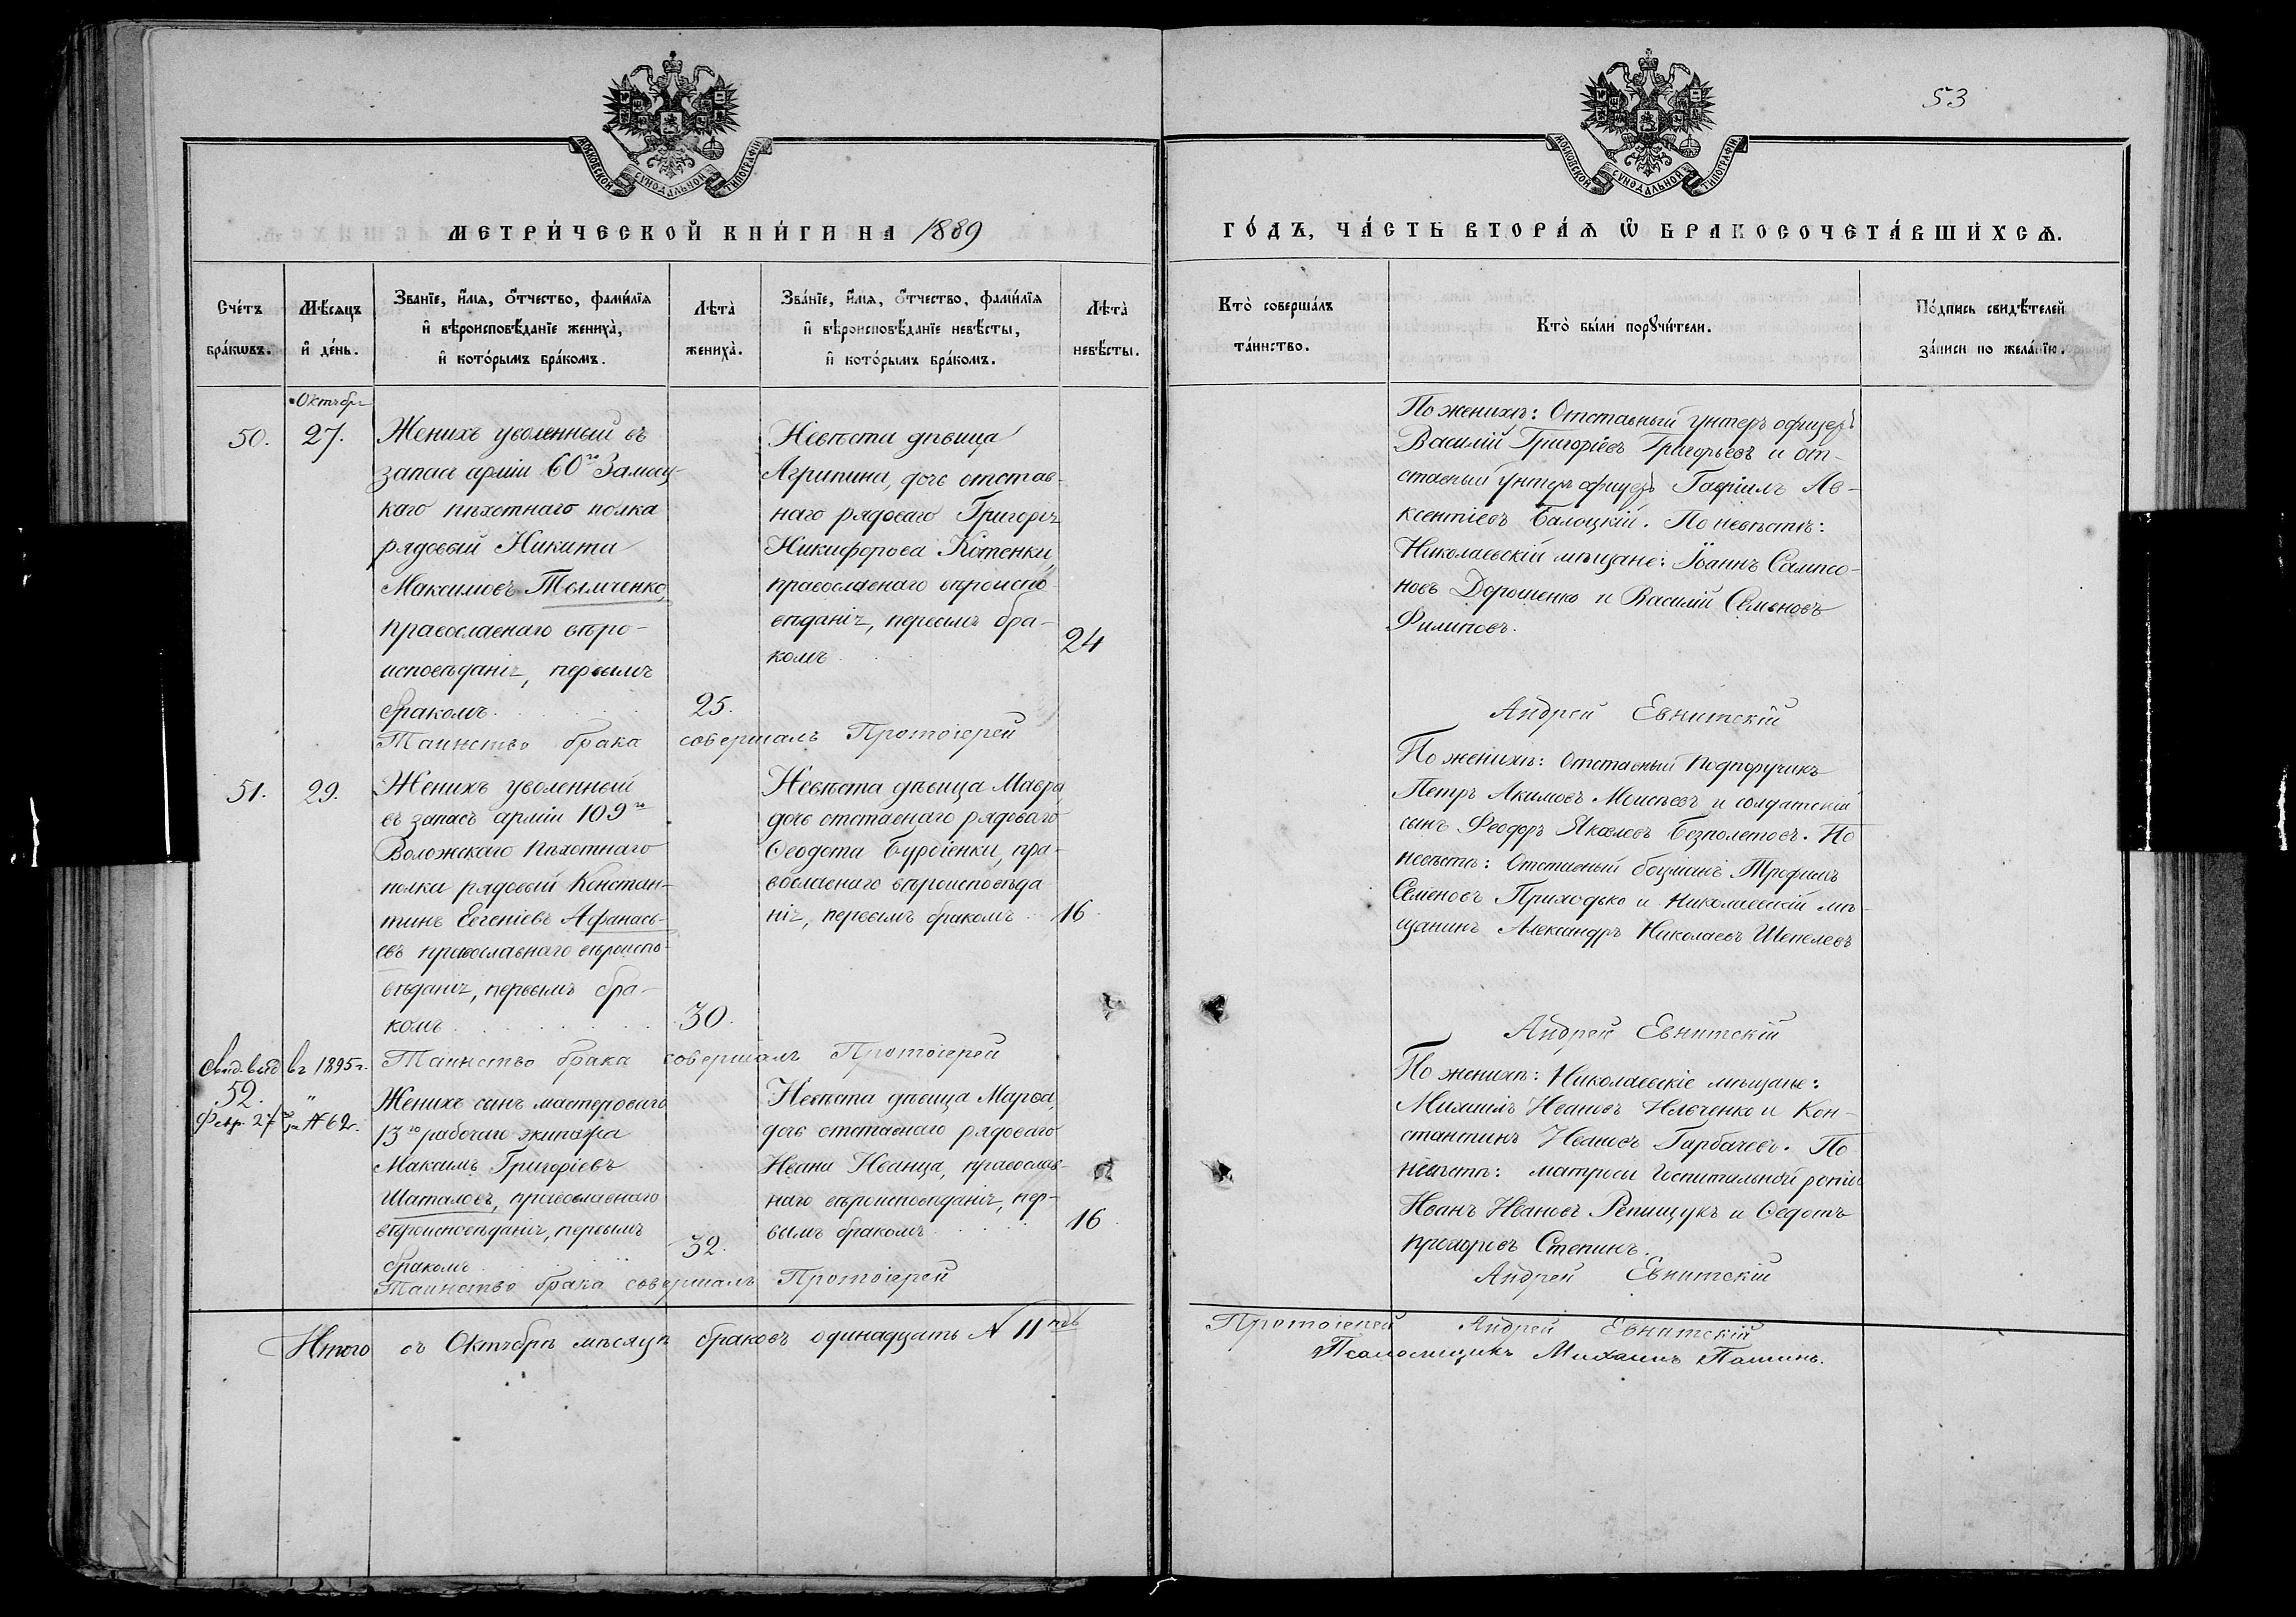 53
МОСКОВСКОЙ СѴНОДАЛЬНОЙ ТИПОГРАФІИ
МОСКОВСКОЙ СѴНОДАЛЬНОЙ ТИПОГРАФІИ
МЕТРИ́ЧЕСКОЙ КНИ́ГИ НА 1889
ГО́ДЪ, ЧА́СТЬ ВТОРА́Ѧ Ѡ БРАКОСОЧЕТА́ВШИХСѦ.
Сче́тъ
бра́кѡвъ.
Мѣ́сѧцъ
и҆ де́нь.
Зва́нїе, и҆́мѧ, ѻ҆́тчество, фамі́лїѧ
и҆ вѣроисповѣ́данїе жениха̀,
и҆ кото́рымъ бра́комъ.
Лѣ́та
жениха̀.
Зва́нїе, и҆́мѧ, ѻ҆́тчество, фамі́лїѧ
и҆ вѣроисповѣ́данїе невѣ́сты,
и҆ кото́рымъ бра́комъ.
Лѣ́та
невѣ́сты.
Кто̀ соверша́лъ
та́инство.
Кто̀ бы́ли порꙋчи́тели.
По́дпись свидѣ́телей
за́писи по жела́нїю.
Октября
50.
27.
Женихъ уволенный въ
запасъ арміи 60го Замосц-
каго пѣхотнаго полка
рядовый Никита
Максимовъ Тымченко,
православнаго вѣро-
исповѣданія, первымъ
бракомъ
25.
Невѣста дѣвица
Агрипина, дочь отстав-
наго рядоваго Григорія
Никифорова Котенки,
православнаго вѣроиспо-
вѣданія, первымъ бра-
комъ
24
По женихѣ: Отставный унтеръ офицеръ
Василій Григоріевъ Григорьевъ и от-
ставный унтеръ офицеръ Гавріилъ Ав-
ксентіевъ Балоцкій. По невѣстѣ:
Николаевскій мѣщане: Іоаннъ Сампсо-
новъ Дорошенко и Василій Семеновъ
Филиповъ.
Таинство брака совершалъ Протоіерей Андрей Евнитскій
51.
29.
Женихъ уволенный
въ запасъ арміи 109го
Воложскаго пѣхотнаго
полка рядовый Констан-
тинъ Евгеніевъ Афанась-
евъ православнаго вѣроиспо-
вѣданія, первымъ бра-
комъ
30.
Невѣста дѣвица Мавра,
дочь отставнаго рядоваго
Ѳеодота Бурбіенки, пра-
вославнаго вѣроисповѣда
нія, первымъ бракомъ
16.
По женихѣ: Отставный Подпоручикъ
Петръ Акимовъ Моисѣевъ и солдатскій
сынъ Феодоръ Яковлевъ Безполетовъ. По
невѣстѣ: Отставный боцманъ Трофимъ
Семеновъ Приходько и Николаевскій мѣ-
щанинъ Александръ Николаевъ Шепелевъ
Таинство брака совершалъ Протоіерей Андрей Евнитскій
Свид. выд въ 1895 г.
52.
"
Февр. 27го за № 62.
Женихъ сынъ мастероваго
13го рабочаго экипажа
Максимъ Григоріевъ
Шаталовъ, православнаго
вѣроисповѣданія, первымъ
бракомъ
32.
Невѣста дѣвица Марѳа,
дочь отставнаго рядоваго
Ивана Иванца, православ-
наго вѣроисповѣданія, пер-
вымъ бракомъ
16.
По женихѣ: Николаевскіе мѣщане:
Михаилъ Ивановъ Ильченко и Кон-
стантинъ Ивановъ Гарбачевъ. По
невѣстѣ: матросы Госпитальной роты
Иванъ Ивановъ Репищукъ и Ѳедотъ
Прохоровъ Степинъ.
Таинство брака совершалъ Протоіерей Андрей Евнитскій
Итого въ Октябрѣ мѣсяцѣ браковъ одинадцать № 11
Протоіерей Андрей Евнитскій
Псаломщикъ Михаилъ Пашинъ.